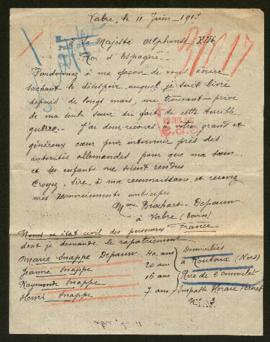 Vabre, le 11 Juin 1917
Sa Majesté Alphonse XIII
Roi d'Espagne
Pardonnez à ma façon de vous écrire
sachant le désespoir auquel je suis livrée
depuis de longs mois, me trouvant privée
de ma seule sœur du fait de cette terrible
guerre. J'ai donc recours à votre grand et
généreux cœur pour informer près des
autorités allemandes pour que ma sœur
et ses enfants me soient rendus
Croyez, Sire, à ma reconnaissance et recevez
mes remerciements anticipés
Mme Depauw
à Vabre (Tarn)
France
Noms et état civil des personnes
dont je demande le rapatriement
Marie Snappe Depauw 40 ans
Jeanne Snappe 20 ans
Raymonde Snappe 16 ans
Henri Snappe 7 ans
Domiciliés
à Roubaix (Nord)
Rue de
impasse